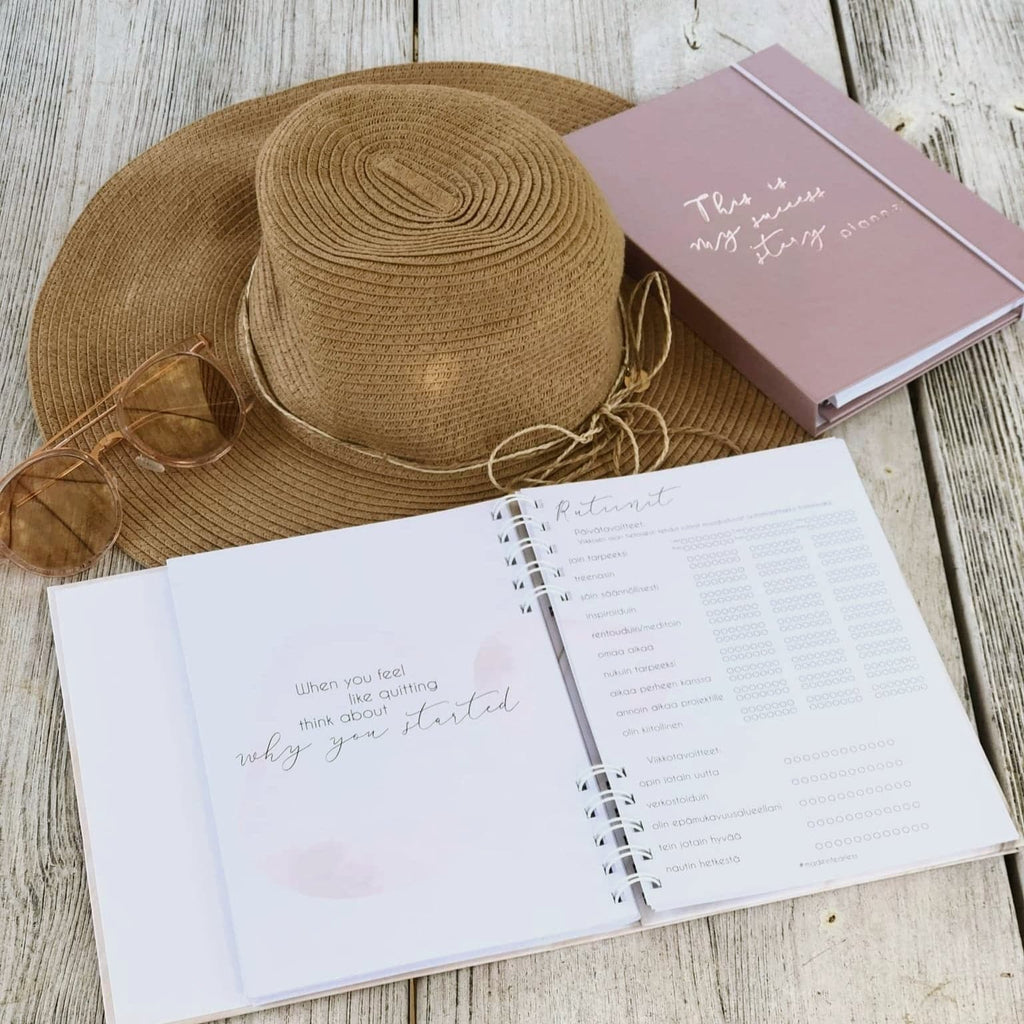 This is
my success
story planner
When you feel
like quitting
think about
why you started
Rutiinit
Päivätavoitteet:
join tarpeeksi
treenasin
söin säännöllisesti
inspiroiduin
rentouduin/meditoin
omaa aikaa
nukuin tarpeeksi
aikaa perheen kanssa
annoin aikaa projektille
olin kiitollinen
Viikkotavoitteet:
opin jotain uutta
verkostoiduin
olin epämukavuusalueellani
tein jotain hyvää
nautin hetkestä